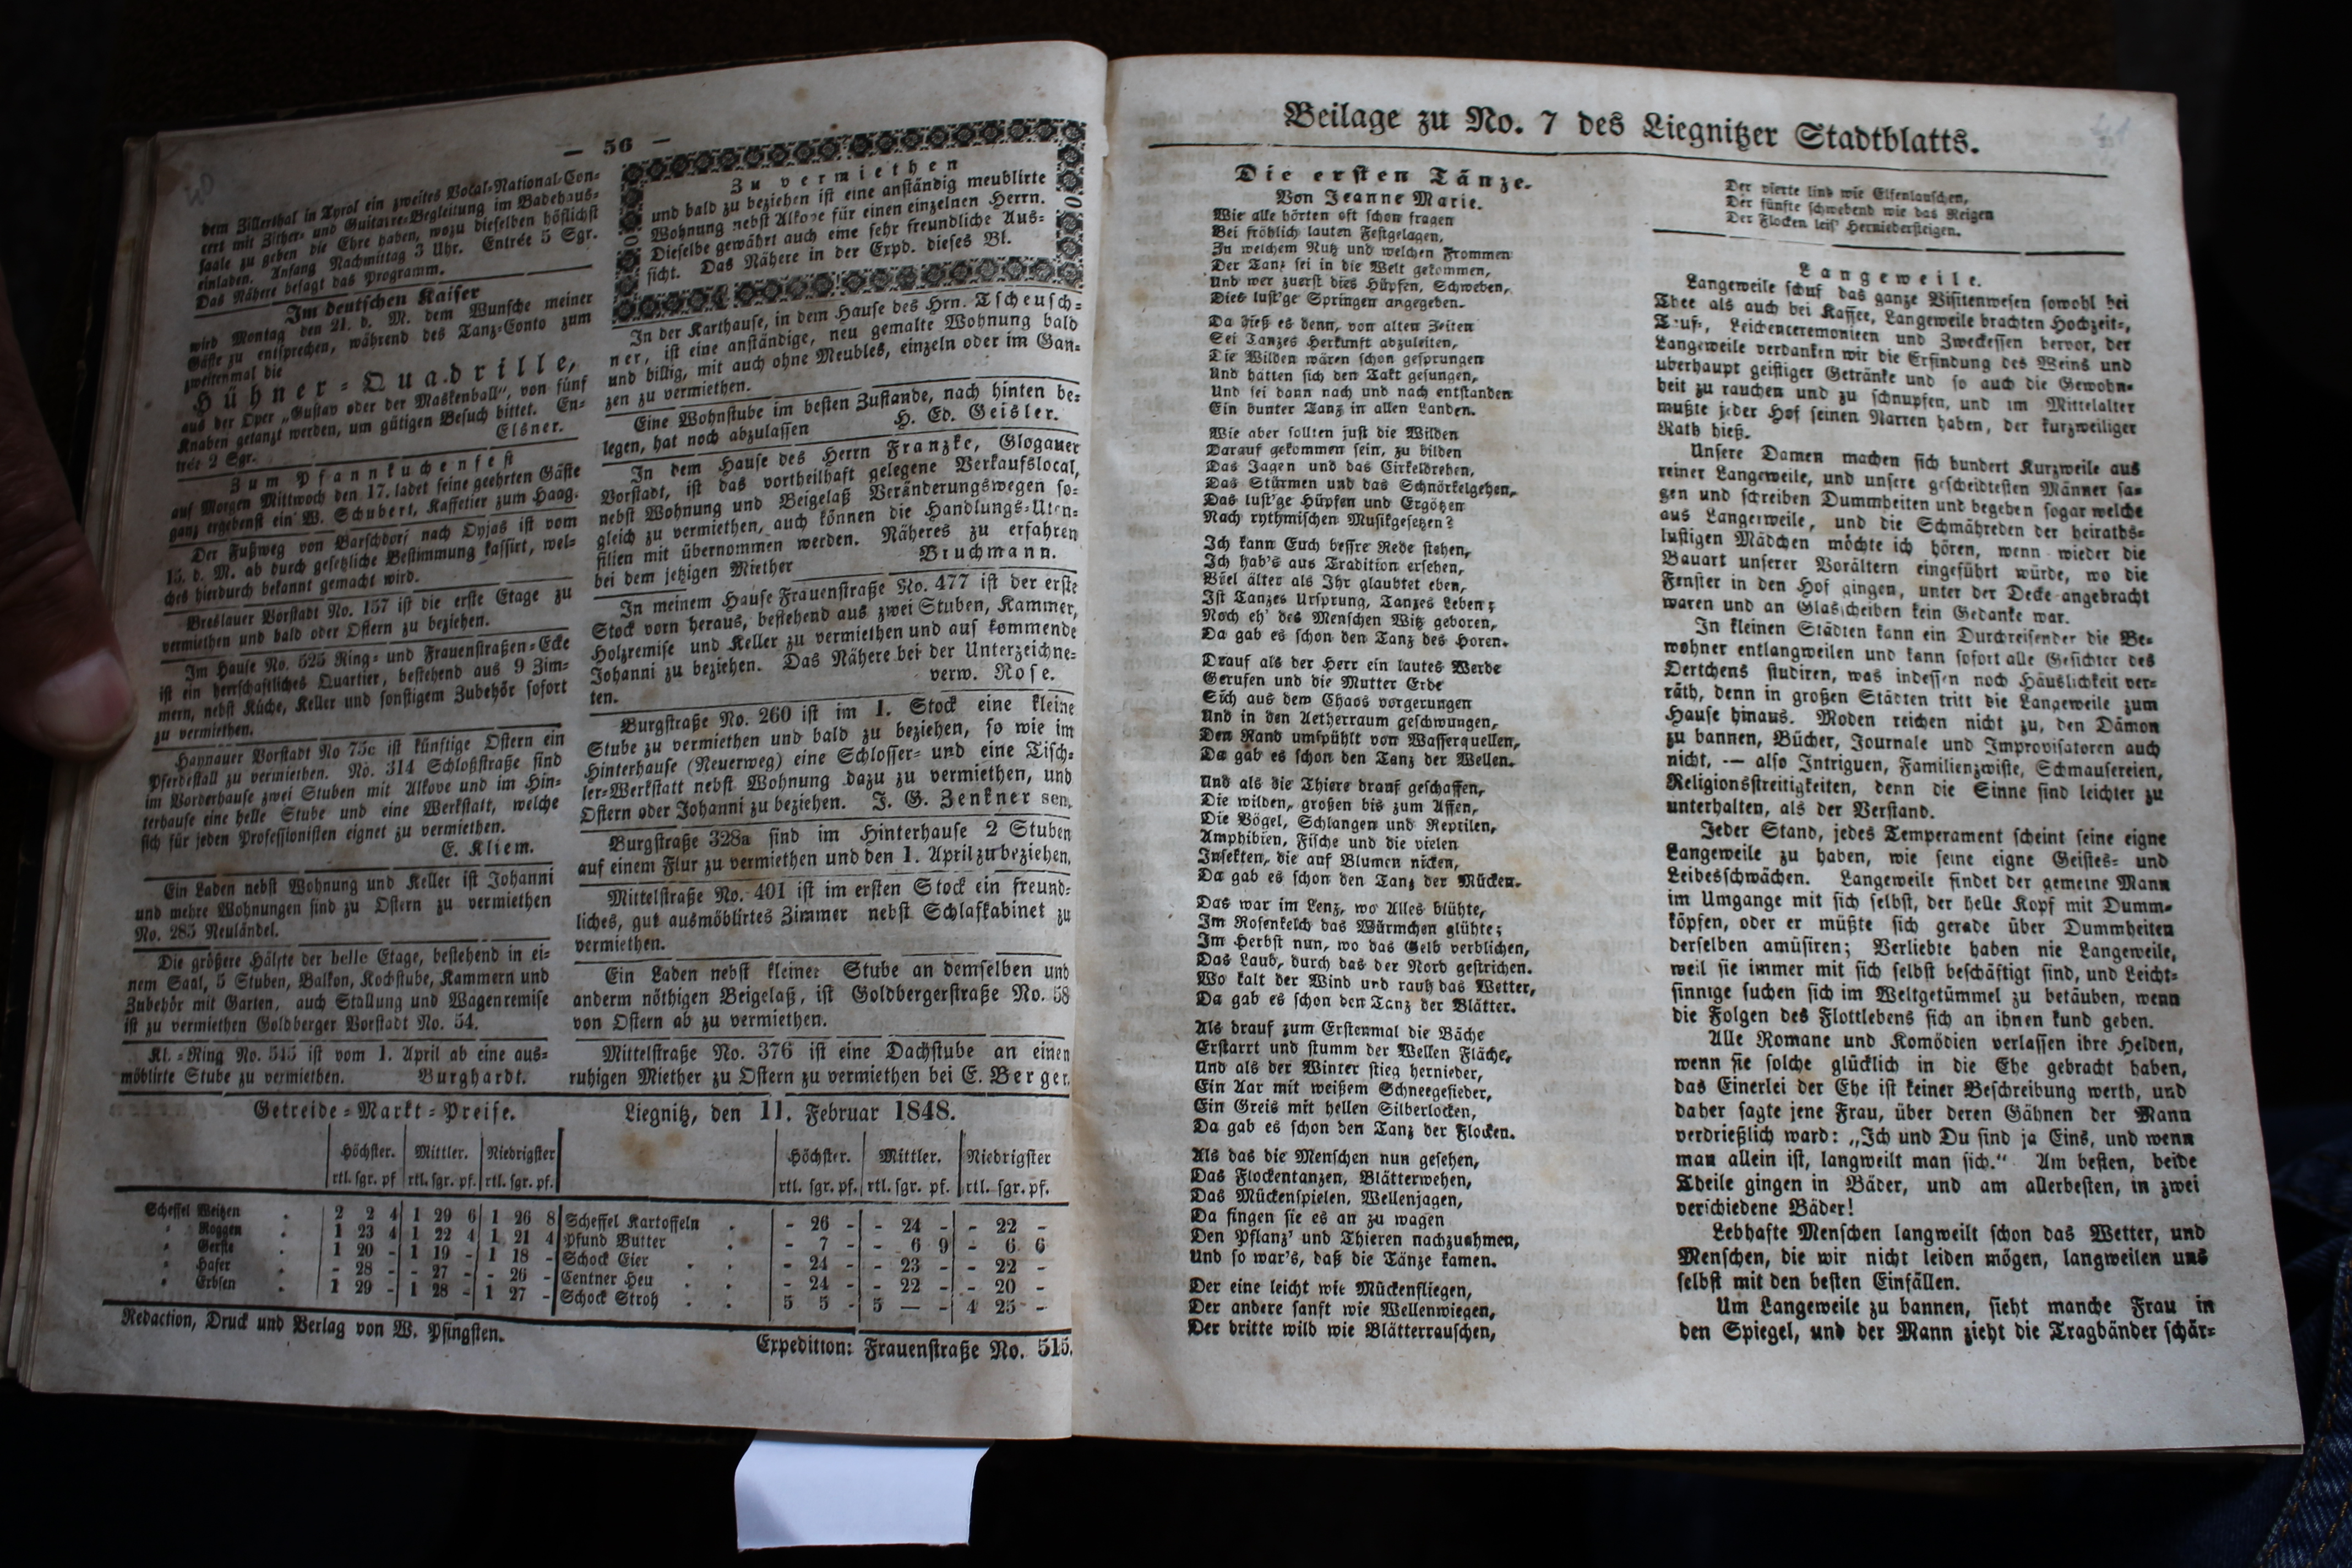 — 56 —
dem Zillerthal in Tyrol ein zweites Vocal-National-Con-
cert mit Zither- und Guitarre-Begleitung im Badehaus-
saale zu geben die Ehre haben, wozu dieselben höflichst
einladen. Anfang Nachmittag 3 Uhr. Entrée 5 Sgr.
Das Nähere besagt das Programm.
Im deutschen Kaiser
wird Montag den 21. d. M. dem Wunsche meiner
Gäste zu entsprechen, während des Tanz-Conto zum
zweitenmal die
Hühner-Quadrille,
aus der Oper „Gustav oder der Maskenball", von fünf
Knaben getanzt werden, um gütigen Besuch bittet. En-
trée 2 Sgr. Elsner.
Zum Pfannkuchenfest
auf Morgen Mittwoch den 17. ladet seine geehrten Gäste
ganz ergebenst ein W. Schubert, Kaffetier zum Haag.
Der Fußweg von Barschdorf nach Oyjas ist vom
15. d. M. ab durch gesetzliche Bestimmung kassirt, wel-
ches hierdurch bekannt gemacht wird.
Breslauer Vorstadt No. 157 ist die erste Etage zu
vermiethen und bald oder Ostern zu beziehen.
Im Hause No. 525 Ring- und Frauenstraßen-Ecke
ist ein herrschaftliches Quartier, bestehend aus 9 Zim-
mern, nebst Küche, Keller und sonstigem Zubehör sofort
zu vermiethen.
Haynauer Vorstadt No 75c ist künftige Ostern ein
Pferdestall zu vermiethen. No. 314 Schloßstraße sind
im Vorderhause zwei Stuben mit Alkove und im Hin-
terhause eine helle Stube und eine Werkstalt, welche
sich für jeden Professionisten eignet zu vermiethen.
E. Kliem.
Ein Laden nebst Wohnung und Keller ist Johanni
und mehre Wohnungen sind zu Ostern zu vermiethen
No. 285 Neuländel.
Die größere Hälfte der belle Etage, bestehend in ei-
nem Saal, 5 Stuben, Balkon, Kochstube, Kammern und
Zubehör mit Garten, auch Stallung und Wagenremise
ist zu vermiethen Goldberger Vorstadt No. 54.
Kl.-Ring No. 515 ist vom 1. April ab eine aus-
möblirte Stube zu vermiethen. Burghardt.
Zu vermiethen
und bald zu beziehen ist eine anständig meublirte
Wohnung nebst Alkove für einen einzelnen Herrn.
Dieselbe gewährt auch eine sehr freundliche Aus-
sicht. Das Nähere in der Expd. dieses Bl.
In der Karthause, in dem Hause des Hrn. Tscheusch-
ner, ist eine anständige, neu gemalte Wohnung bald
und billig, mit auch ohne Meubles, einzeln oder im Gan-
zen zu vermiethen.
Eine Wohnstube im besten Zustande, nach hinten be-
legen, hat noch abzulassen H. Ed. Geisler.
In dem Hause des Herrn Franzke, Glogauer
Vorstadt, ist das vortheilhaft gelegene Verkaufslocal,
nebst Wohnung und Beigelaß Veränderungswegen so-
gleich zu vermiethen, auch können die Handlungs-Uten-
silien mit übernommen werden. Näheres zu erfahren
bei dem jetzigen Miether Bruchmann.
In meinem Hause Frauenstraße No. 477 ist der erste
Stock vorn heraus, bestehend aus zwei Stuben, Kammer,
Holzremise und Keller zu vermiethen und auf kommende
Johanni zu beziehen. Das Nähere bei der Unterzeichne-
ten. verw. Rose.
Burgstraße No. 260 ist im 1. Stock eine kleine
Stube zu vermiethen und bald zu beziehen, so wie im
Hinterhause (Neuerweg) eine Schlosser- und eine Tisch-
ler-Werkstatt nebst Wohnung dazu zu vermiethen, und
Ostern oder Johanni zu beziehen. J. G. Zenkner sen.
Burgstraße 328a sind im Hinterhause 2 Stuben
auf einem Flur zu vermiethen und den 1. April zu beziehen.
Mittelstraße No. 401 ist im ersten Stock ein freund-
liches, gut ausmöblirtes Zimmer nebst Schlafkabinet zu
vermiethen.
Ein Laden nebst kleiner Stube an demselben und
anderm nöthigen Beigelaß, ist Goldbergerstraße No. 58
von Ostern ab zu vermiethen.
Mittelstraße No. 376 ist eine Dachstube an einen
ruhigen Miether zu Ostern zu vermiethen bei E. Berger.
Getreide-Markt-Preise. Liegnitz, den 11. Februar 1848.
Höchster. Mittler. Niedrigster Höchster. Mittler. Niedrigster
rtl. sgr. pf rtl. sgr. pf. rtl. sgr. pf. rtl. sgr. pf. rtl. sgr. pf. rtl. sgr. pf.
Scheffel Weitzen . 2 2 4 1 29 6 1 26 8 Scheffel Kartoffeln . - 26 - - 24 - - 22 -
" Roggen . 1 23 4 1 22 4 1 21 4 Pfund Butter . - 7 - - 6 9 - 6 6
" Gerste . 1 20 - 1 19 - 1 18 - Schock Eier . . - 24 - - 23 - - 22 -
" Hafer . - 28 - - 27 - - 26 - Centner Heu . . - 24 - - 22 - - 20 -
" Erbsen . 1 29 - 1 28 - 1 27 - Schock Stroh . . 5 5 - 5 — - 4 25 -
Redaction, Druck und Verlag von W. Pfingsten. Expedition: Frauenstraße No. 515.
Beilage zu No. 7 des Liegnitzer Stadtblatts.
Die ersten Tänze.
Von Jeanne Marie.
Wie alle hörten oft schon fragen
Bei fröhlich lauten Festgelagen,
Zu welchem Nutz und welchen Frommen
Der Tanz sei in die Welt gekommen,
Und wer zuerst dies Hüpfen, Schweben,
Dies lust'ge Springen angegeben.
Da hieß es denn, von alten Zeiten
Sei Tanzes Herkunft abzuleiten,
Die Wilden wären schon gesprungen
Und hätten sich den Takt gesungen,
Und sei dann nach und nach entstanden
Ein bunter Tanz in allen Landen.
Wie aber sollten just die Wilden
Darauf gekommen sein, zu bilden
Das Jagen und das Cirkeldrehen,
Das Stürmen und das Schnörkelgehen,
Das lust'ge Hüpfen und Ergötzen
Nach rythmischen Musikgesetzen?
Ich kann Euch bessre Rede stehen,
Ich hab's aus Tradition ersehen,
Viel älter als Ihr glaubtet eben,
Ist Tanzes Ursprung, Tanzes Leben;
Noch eh' des Menschen Witz geboren,
Da gab es schon den Tanz des Horen.
Drauf als der Herr ein lautes Werde
Gerufen und die Mutter Erde
Sich aus dem Chaos vorgerungen
Und in den Aetherraum geschwungen,
Den Rand umspühlt von Wasserquellen,
Da gab es schon den Tanz der Wellen.
Und als die Thiere drauf geschaffen,
Die wilden, großen bis zum Affen,
Die Vögel, Schlangen und Reptilen,
Amphibien, Fische und die vielen
Insekten, die auf Blumen nicken,
Da gab es schon den Tanz der Mücken.
Das war im Lenz, wo Alles blühte,
Im Rosenkelch das Würmchen glühte;
Im Herbst nun, wo das Gelb verblichen,
Das Laub, durch das der Nord gestrichen.
Wo kalt der Wind und rauh das Wetter,
Da gab es schon den Tanz der Blätter.
Als drauf zum Erstenmal die Bäche
Erstarrt und stumm der Wellen Fläche,
Und als der Winter stieg hernieder,
Ein Aar mit weißem Schneegefieder,
Ein Greis mit hellen Silberlocken,
Da gab es schon den Tanz der Flocken.
Als das die Menschen nun gesehen,
Das Flockentanzen, Blätterwehen,
Das Mückenspielen, Wellenjagen,
Da fingen sie es an zu wagen
Den Pflanz' und Thieren nachzuahmen,
Und so war's, daß die Tänze kamen.
Der eine leicht wie Mückenfliegen,
Der andere sanft wie Wellenwiegen,
Der dritte wild wie Blätterrauschen,
Der vierte lind wie Elfenlauschen,
Der fünfte schwebend wie das Reigen
Der Flocken leis' Herniedersteigen.
Langeweile.
Langeweile schuf das ganze Visitenwesen sowohl bei
Thee als auch bei Kaffee, Langeweile brachten Hochzeit-,
Tauf-, Leichenceremonieen und Zweckessen hervor, der
Langeweile verdanken wir die Erfindung des Weins und
uberhaupt geistiger Getränke und so auch die Gewohn-
heit zu rauchen und zu schnupfen, und im Mittelalter
mußte jeder Hof seinen Narren haben, der kurzweiliger
Rath hieß.
Unsere Damen machen sich hundert Kurzweile aus
reiner Langeweile, und unsere gescheidtesten Männer sa-
gen und schreiben Dummheiten und begehen sogar welche
aus Langerweile, und die Schmähreden der heiraths-
lustigen Mädchen möchte ich hören, wenn wieder die
Bauart unserer Vorältern eingeführt würde, wo die
Fenster in den Hof gingen, unter der Decke angebracht
waren und an Glasscheiben kein Gedanke war.
In kleinen Städten kann ein Durchreisender die Be-
wohner entlangweilen und kann sofort alle Gesichter des
Oertchens studiren, was indessen noch Häuslichkeit ver-
räth, denn in großen Städten tritt die Langeweile zum
Hause hinaus. Moden reichen nicht zu, den Dämon
zu bannen, Bücher, Journale und Improvisatoren auch
nicht, — also Intriguen, Familienzwiste, Schmausereien,
Religionsstreitigkeiten, denn die Sinne sind leichter zu
unterhalten, als der Verstand.
Jeder Stand, jedes Temperament scheint seine eigne
Langeweile zu haben, wie seine eigne Geistes- und
Leibesschwächen. Langeweile findet der gemeine Mann
im Umgange mit sich selbst, der helle Kopf mit Dumm-
köpfen, oder er müßte sich gerade über Dummheiten
derselben amüsiren; Verliebte haben nie Langeweile,
weil sie immer mit sich selbst beschäftigt sind, und Leicht-
sinnige suchen sich im Weltgetümmel zu betäuben, wenn
die Folgen des Flottlebens sich an ihnen kund geben.
Alle Romane und Komödien verlassen ihre Helden,
wenn sie solche glücklich in die Ehe gebracht haben,
das Einerlei der Ehe ist keiner Beschreibung werth, und
daher sagte jene Frau, über deren Gähnen der Mann
verdrießlich ward: „Ich und Du sind ja Eins, und wenn
man allein ist, langweilt man sich." Am besten, beide
Theile gingen in Bäder, und am allerbesten, in zwei
verschiedene Bäder!
Lebhafte Menschen langweilt schon das Wetter, und
Menschen, die wir nicht leiden mögen, langweilen uns
selbst mit den besten Einfällen.
Um Langeweile zu bannen, sieht manche Frau in
den Spiegel, und der Mann zieht die Tragbänder schär-